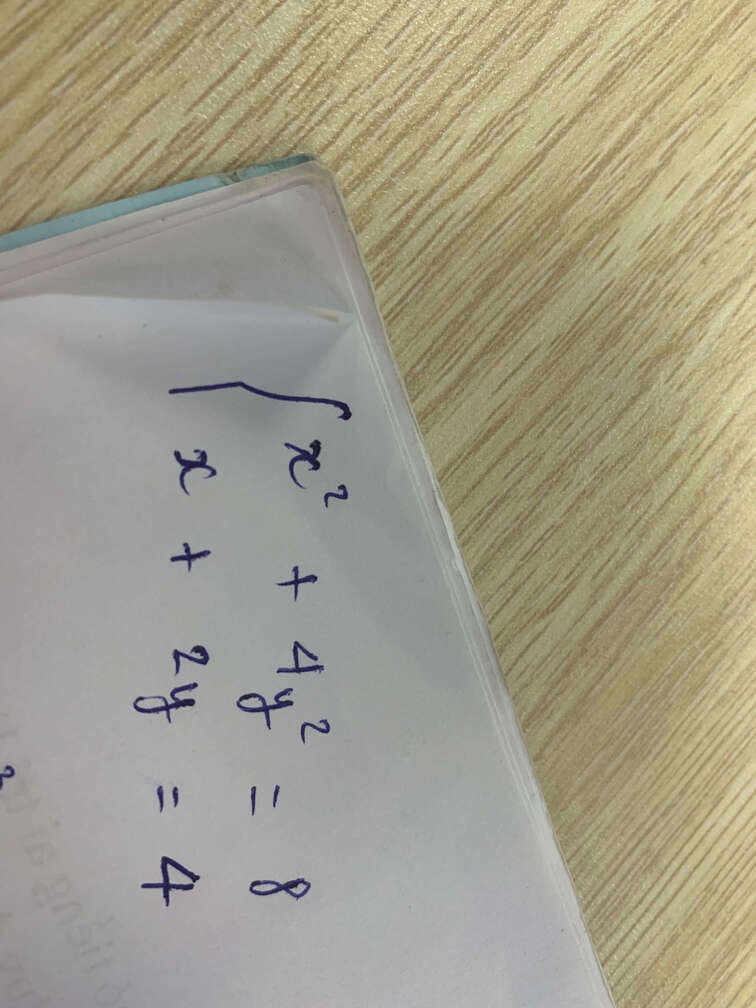 x² + 4y² = 8
x + 2y = 4